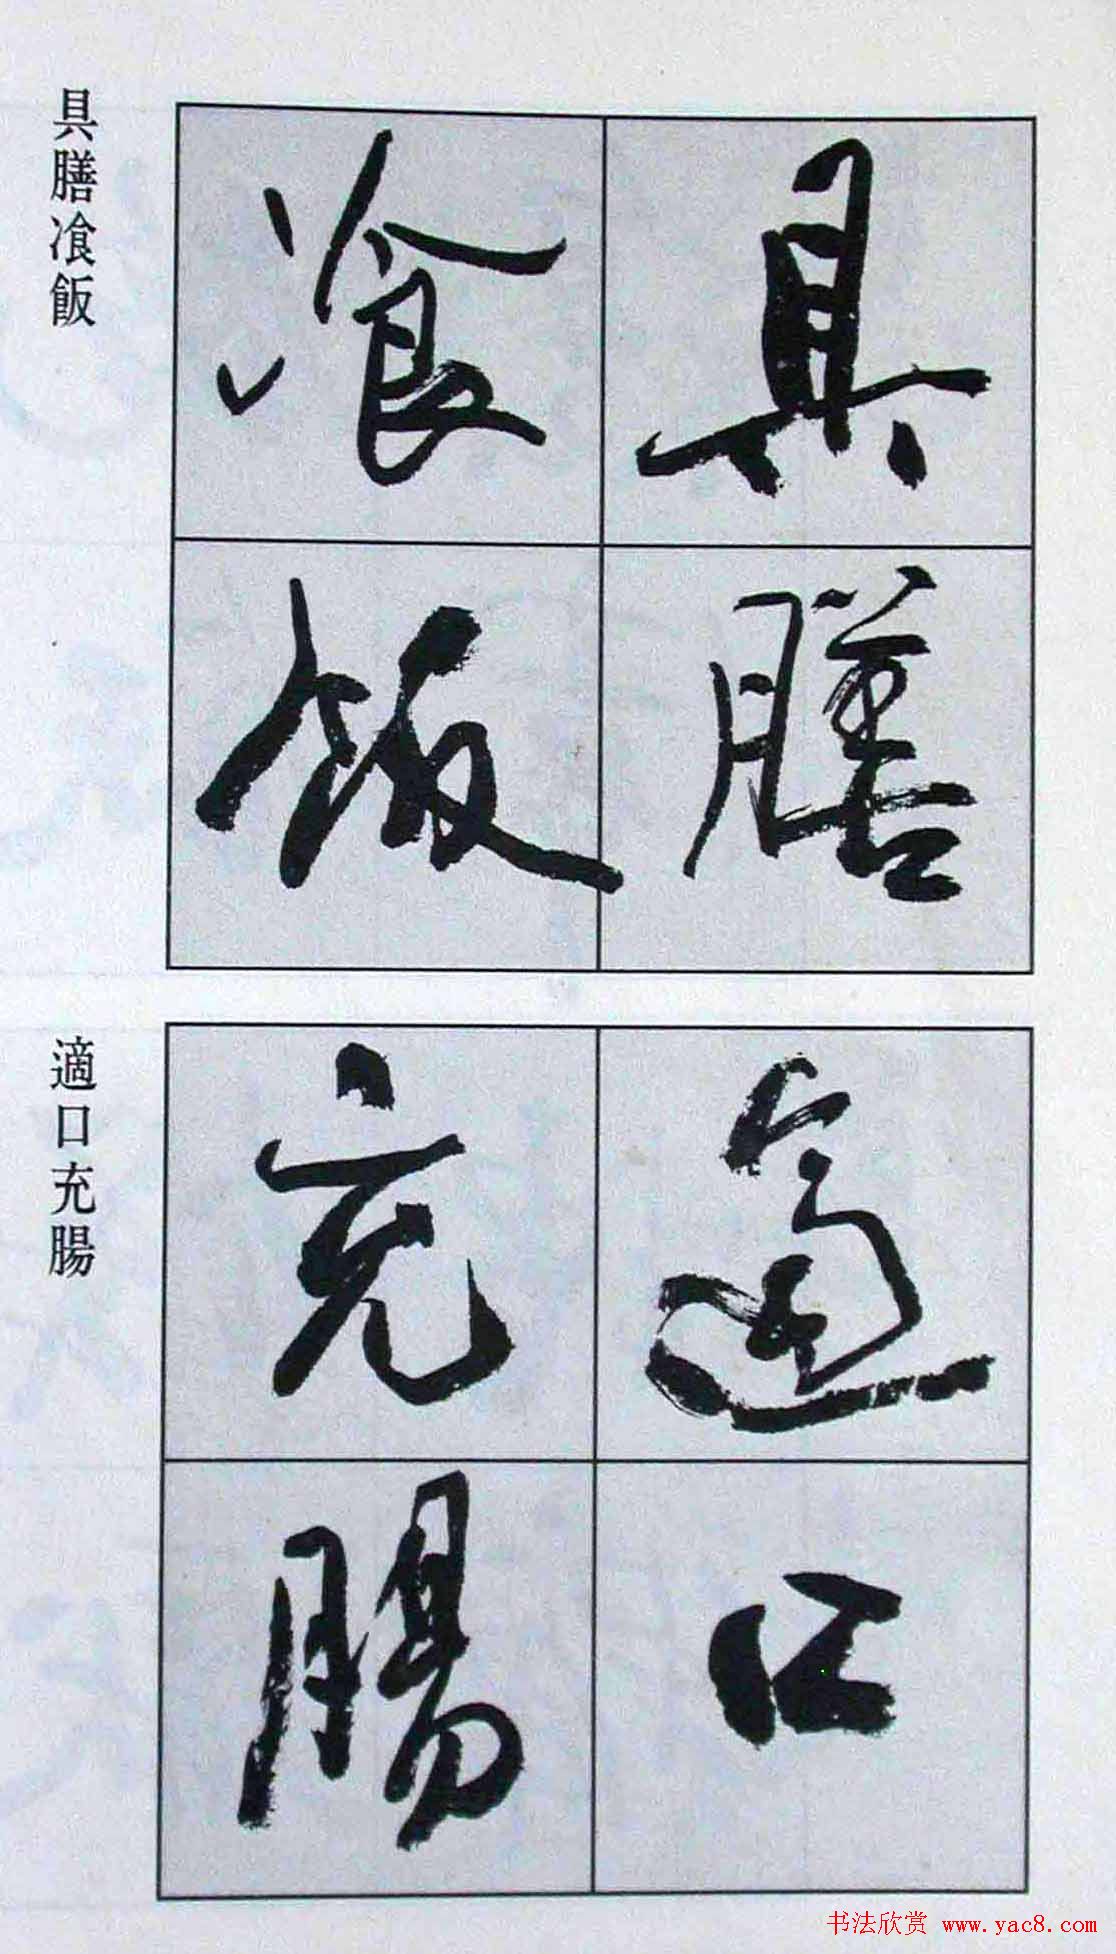 具膳
飡飯
具膳飡飯
適口
充腸
適口充腸
书法欣赏 www.yac8.com